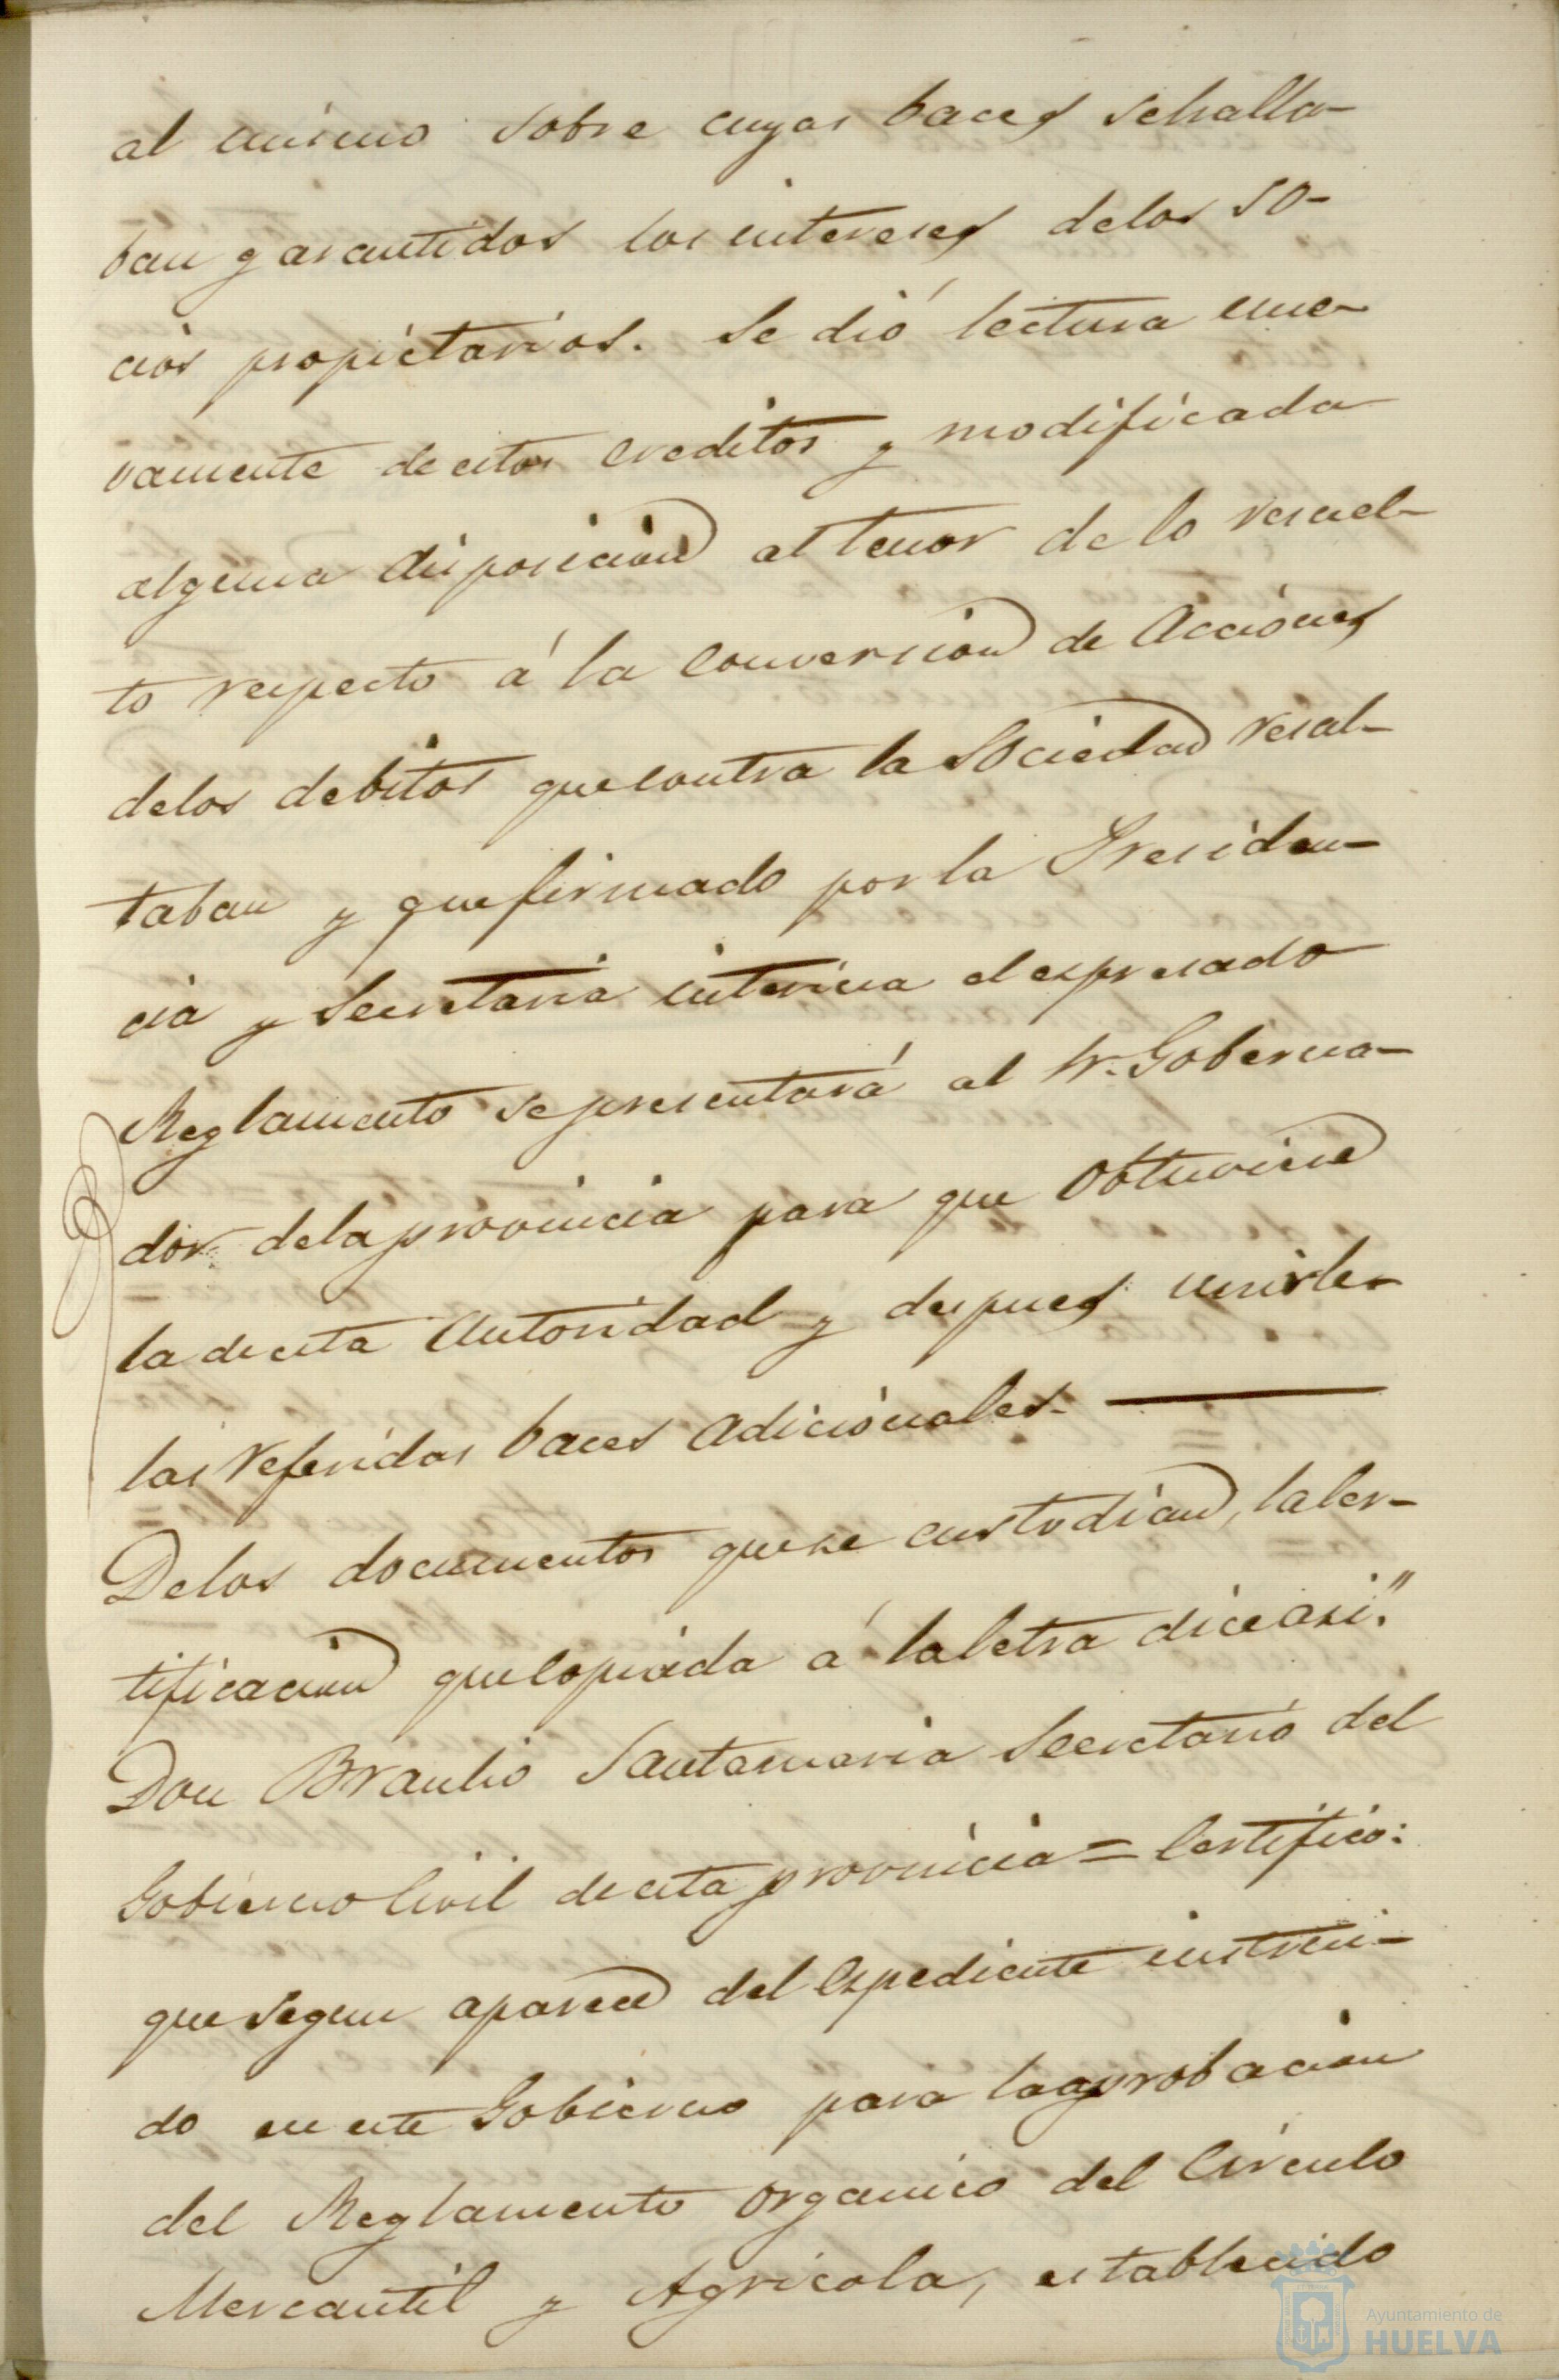 al mismo sobre cuyas baces sehalla-
ban garantidos los intereses delos so-
cios propietarios. Se dió lectura nue-
vamente de estos creditos y modificada
alguna disposicion al tenor de lo resuel-
to respecto á la conversion de Acciones
delos debitos que contra la Sociedad resul-
taban y que firmado por la Presiden-
cia y Secretaria interina el espresado
Reglamento se presentará al Sr. Goberna-
dor dela provincia para que obtuviese
la de esta Autoridad y despues unirle-
las referidas baces adicionales. —
Delos documentos que se custodian, la cer-
tificacion que copiada á la letra dice asi."
Don Braulio Santamaria Secretario del
Gobierno Civil de esta provincia = Certifico:
que segun aparece del Espediente instrui-
do en este Gobierno para la aprobacion
del Reglamento organico del Circulo
Mercantil y Agricola, establecido
Ayuntamiento de
HUELVA